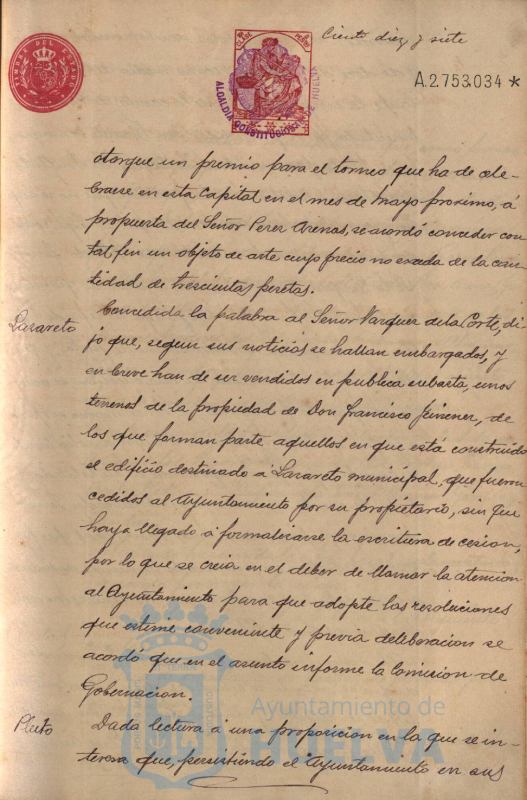 Ciento diez y siete
TIMBRE DEL ESTADO
ALCALDIA CONSTITUCIONAL DE HUELVA
A.2.753.034 *
otorgue un premio para el torneo que ha de cele-
brarse en esta Capital en el mes de Mayo proximo, á
propuesta del Señor Perez Arenas, se acordó conceder con
tal fin un objeto de arte cuyo precio no exceda de la can-
tidad de trescientas pesetas.
Lazareto
Concedida la palabra al Señor Vazquez de la Corte, di-
jo que, segun sus noticias se hallan embargados, y
en breve han de ser vendidos en publica subasta, unos
terrenos de la propiedad de Don Francisco Jimenez, de
los que forman parte aquellos en que está construido
el edificio destinado á Lazareto municipal, que fueron
cedidos al Ayuntamiento por su propietario, sin que
haya llegado á formalizarse la escritura de cesion,
por lo que se creia en el deber de llamar la atencion
al Ayuntamiento para que adopte las resoluciones
que estime conveniente y previa deliberacion se
acordó que en el asunto informe la Comision de
Gobernacion.
Pleito
Dada lectura á una proposicion en la que se in-
teresa que, persistiendo el Ayuntamiento en sus
Ayuntamiento de
HUELVA